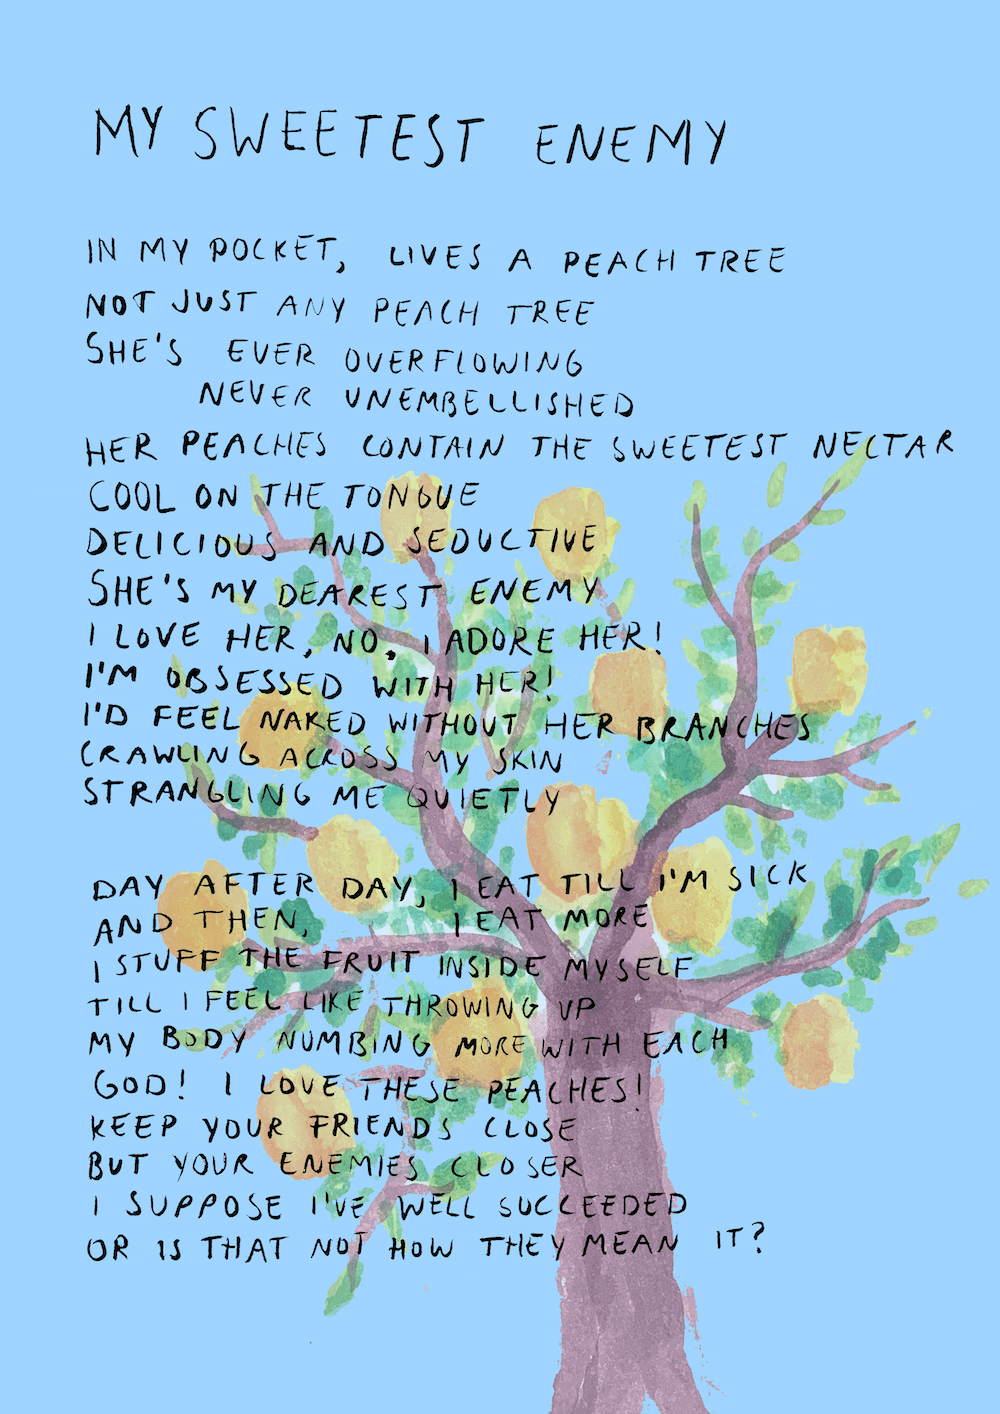 MY SWEETEST ENEMY
IN MY POCKET, LIVES A PEACH TREE
NOT JUST ANY PEACH TREE
SHE'S EVER OVERFLOWING
NEVER UNEMBELLISHED
HER PEACHES CONTAIN THE SWEETEST NECTAR
COOL ON THE TONGUE
DELICIOUS AND SEDUCTIVE
SHE'S MY DEAREST ENEMY
I LOVE HER, NO, I ADORE HER!
I'M OBSESSED WITH HER!
I'D FEEL NAKED WITHOUT HER BRANCHES
CRAWLING ACROSS MY SKIN
STRANGLING ME QUIETLY
DAY AFTER DAY, I EAT TILL I'M SICK
AND THEN, I EAT MORE
I STUFF THE FRUIT INSIDE MYSELF
TILL I FEEL LIKE THROWING UP
MY BODY NUMBING MORE WITH EACH
GOD! I LOVE THESE PEACHES!
KEEP YOUR FRIENDS CLOSE
BUT YOUR ENEMIES CLOSER
I SUPPOSE I'VE WELL SUCCEEDED
OR IS THAT NOT HOW THEY MEAN IT?